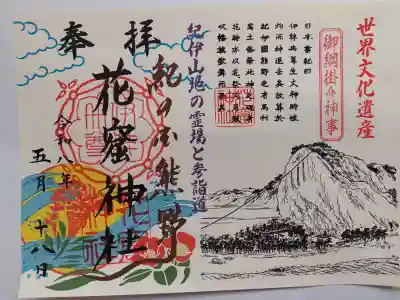 世界文化遺産
御綱掛け神事
日本書紀曰
伊弉冉尊生火神時被
灼而神退去矣故葬於
紀伊國熊野之有馬村
焉土俗祭此神之魂者
花時亦以花祭又用鼓
吹幡旗歌舞而祭矣
紀伊山地の霊場と参詣道
紀の国熊野
奉拝
花窟神社
令和八年
五月十八日